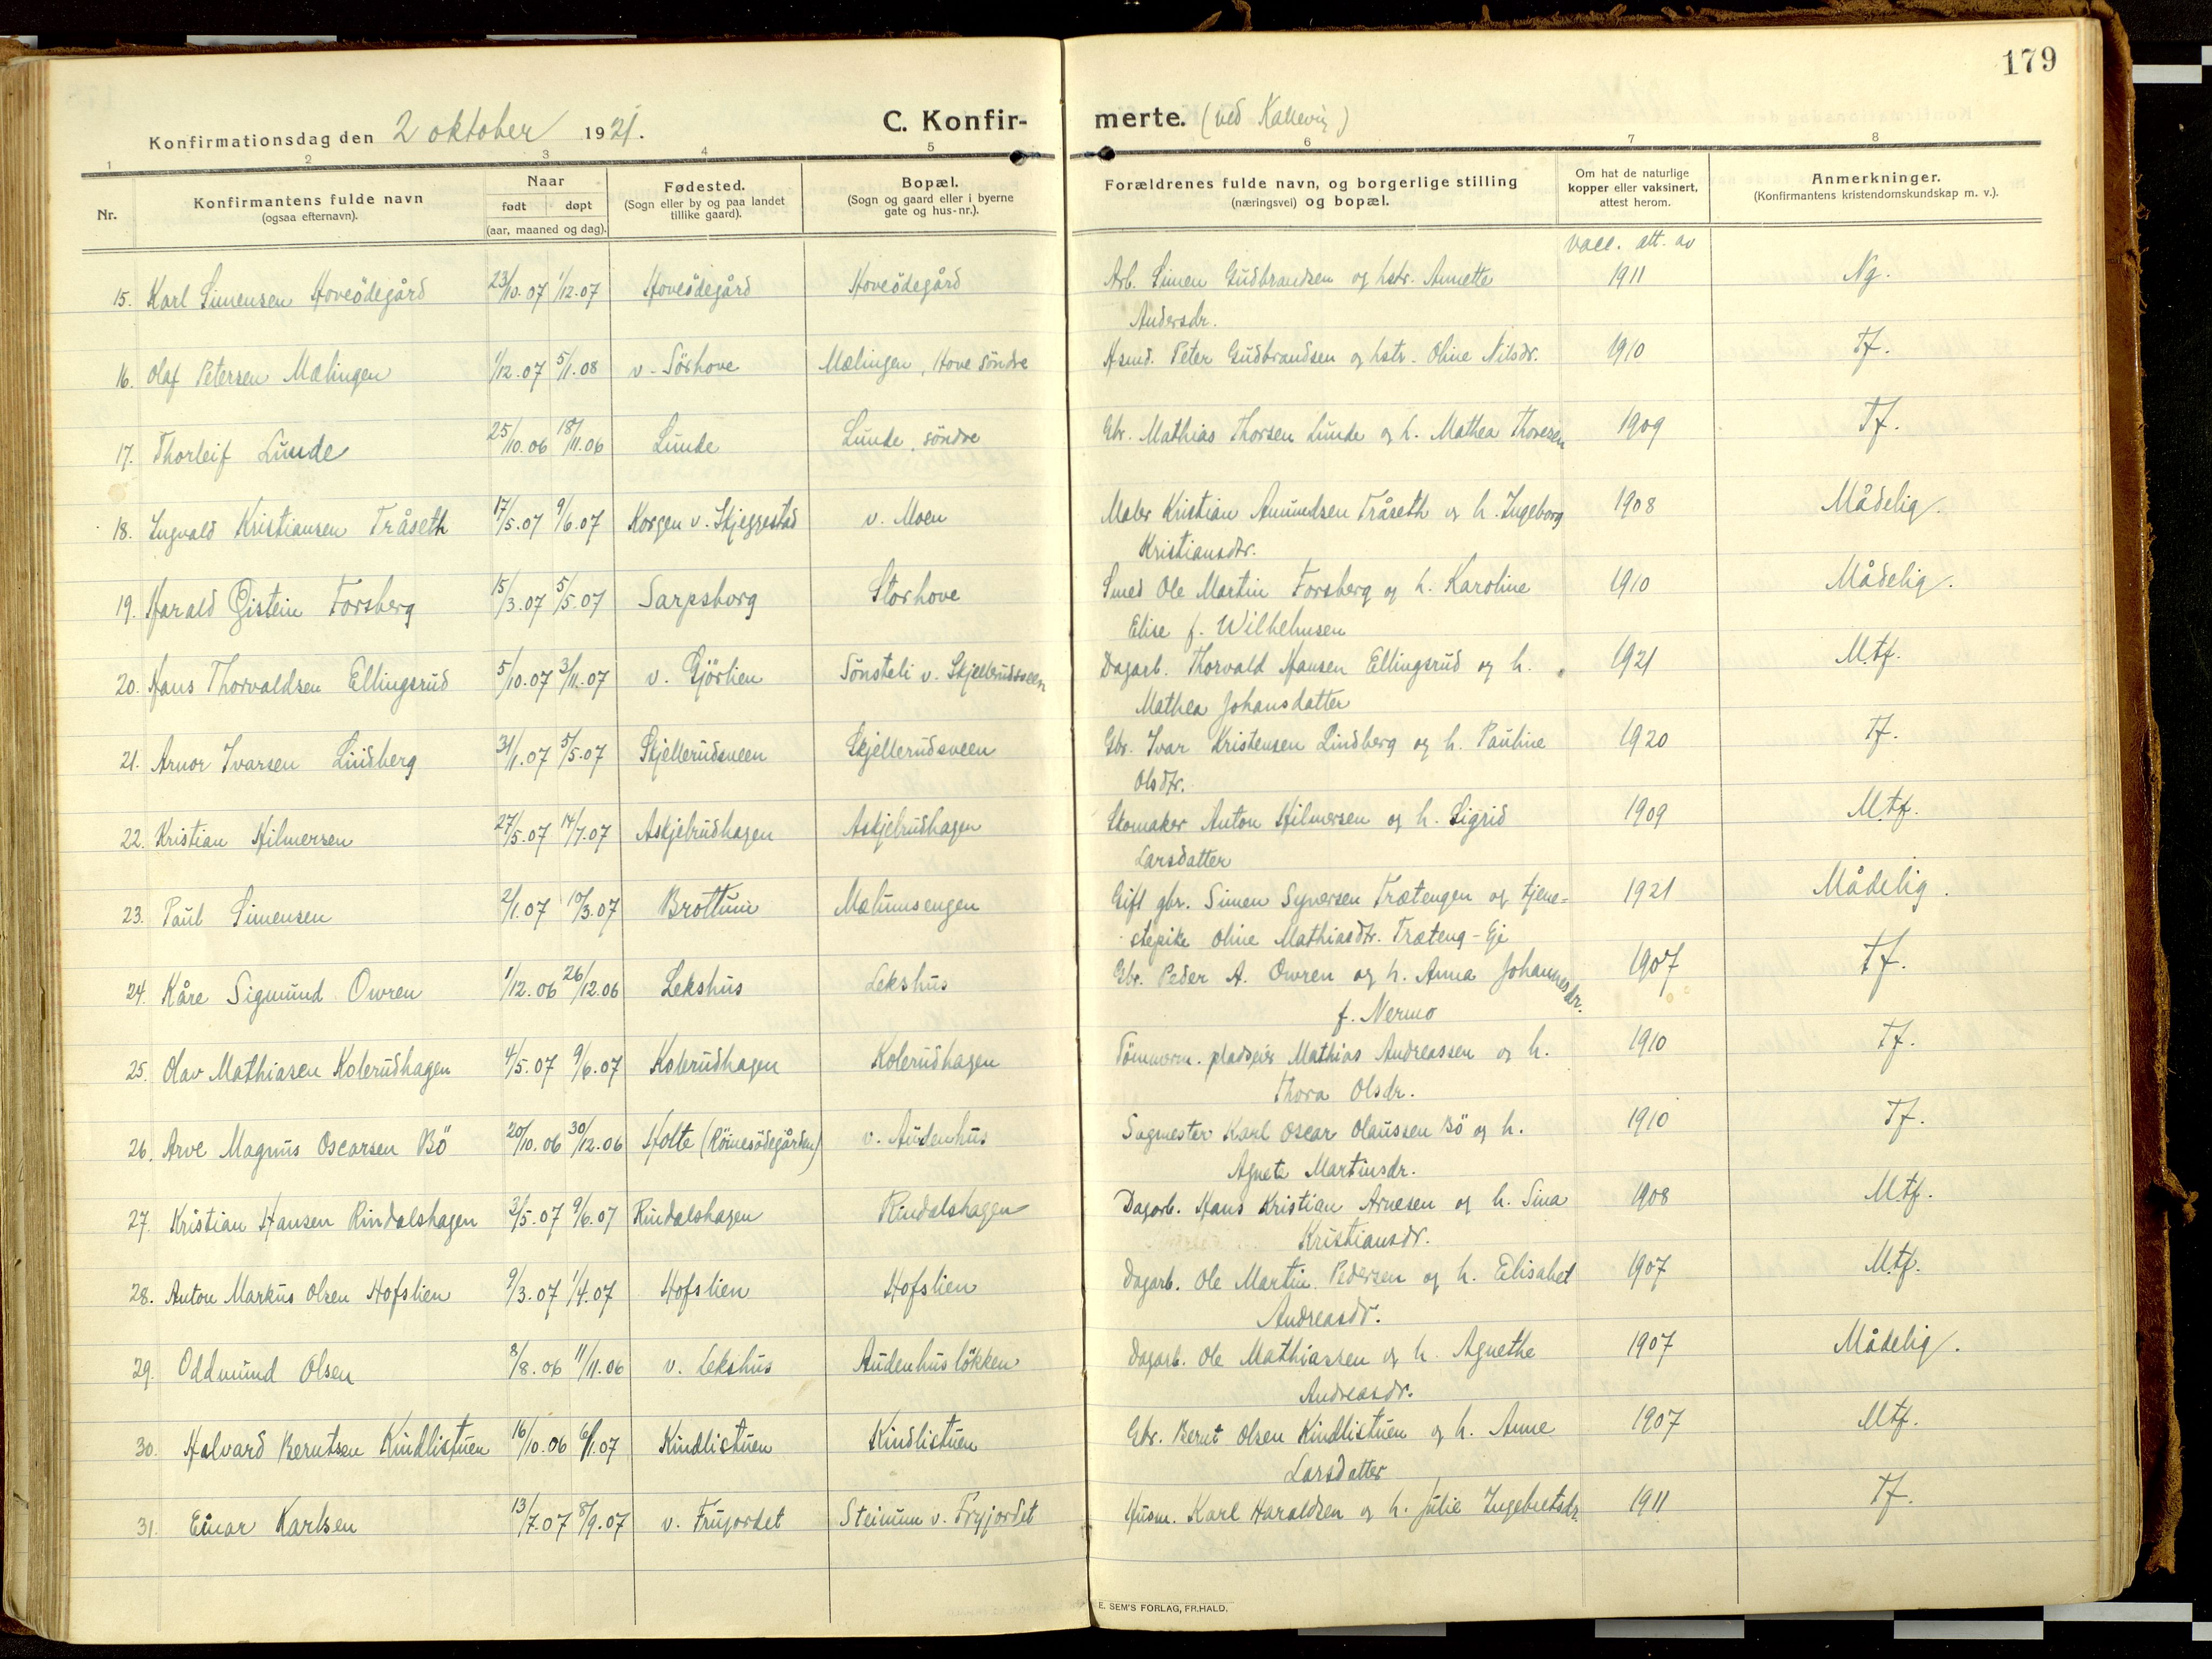 179
Konfirmationsdag den 2 oktober 1921. C. Konfirmerte. (ved Kallevig)
1 2 3 4 5 6 7 8
Nr.
Konfirmantens fulde navn
(ogsaa efternavn).
Naar
født døpt
(aar, maaned og dag).
Fødested.
(Sogn eller by og paa landet
tillike gaard).
Bopæl.
(Sogn og gaard eller i byerne
gate og hus-nr.).
Forældrenes fulde navn, og borgerlige stilling
(næringsvei) og bopæl.
Om hat de naturlige
kopper eller vaksinert,
attest herom.
Anmerkninger.
(Konfirmantens kristendomskundskap m. v.).
vacc. att. av
15. Karl Simensen Hoveödegård 23/10.07 1/12.07 Hoveödegård Hoveödegård Arb. Simen Gudbrandsen og hstr. Annette 1911 Ng.
Andersdr.
16. Olaf Petersen Mælingen 1/12.07 5/1.08 v. Sörhove Mælingen, Hove söndre Hsmd. Peter Gudbrandsen og hstr. Oline Nilsdr. 1910 Tf.
17. Thorleif Lunde 25/10.06 18/11.06 Lunde Lunde, söndre Gbr. Mathias Thorsen Lunde og h. Mathea Thoresen 1909 Tf.
18. Ingvald Kristiansen Tråseth 17/5.07 9/6.07 Korgen v. Skjeggestad v. Moen Maler Kristian Amundsen Tråseth og h. Ingeborg 1908 Mådelig.
Kristiansdtr.
19. Harald Øistein Forsberg 15/3.07 5/5.07 Sarpsborg Storhove Smed Ole Martin Forsberg og h. Karoline 1910 Mådelig.
Elise f. Wilhelmsen
20. Hans Thorvaldsen Ellingsrud 5/10.07 3/11.07 v. Gjörlien Sönsteli v. Skjellerudsveen Dagarb. Thorvald Hansen Ellingsrud og h. 1921 Mtf.
Mathea Johansdatter
21. Arnor Ivarsen Lindberg 31/1.07 5/5.07 Skjellerudsveen Skjellerudsveen Gbr. Ivar Kristensen Lindberg og h. Pauline 1920 Tf.
Olsdtr.
22. Kristian Hilmersen 27/5.07 14/7.07 Askjelrudhagen Askjelrudhagen Skomaker Anton Hilmersen og h. Sigrid 1909 Mtf.
Larsdatter
23. Paul Simensen 2/1.07 10/3.07 Brottum Mælumsengen Gift gbr. Simen Syversen Trætengen og tjene- 1921 Mådelig.
stepike Oline Mathiasdtr. Træteng-Eje
24. Kåre Sigmund Owren 1/12.06 26/12.06 Lekshus Lekshus Gbr. Peder A. Owren og h. Anna Johannesdr. 1907 Tf.
f. Nermo
25. Olav Mathiasen Kolerudhagen 4/5.07 9/6.07 Kolerudhagen Kolerudhagen Tömmerm. pladseier Mathias Andreassen og h. 1910 Tf.
Thora Olsdr.
26. Arve Magnus Oscarsen Bö 20/10.06 30/12.06 Holte (Röinesödegården) v. Audenhus Sagmester Karl Oscar Olaussen Bö og h. 1910 Tf.
Agnete Martinsdr.
27. Kristian Hansen Rindalshagen 3/5.07 9/6.07 Rindalshagen Rindalshagen Dagarb. Hans Kristian Arnesen og h. Sina 1908 Mtf.
Kristiansdr.
28. Anton Markus Olsen Hofslien 9/3.07 1/4.07 Hofslien Hofslien Dagarb. Ole Martin Pedersen og h. Elisabet 1907 Mtf.
Andreasdr.
29. Oddmund Olsen 8/8.06 11/11.06 v. Lekshus Audenhuslökken Dagarb. Ole Mathiassen og h. Agnethe 1907 Mådelig.
Andreasdr.
30. Halvard Berntsen Kindlistuen 16/10.06 6/1.07 Kindlistuen Kindlistuen Gbr. Bernt Olsen Kindlistuen og h. Anne 1907 Mtf.
Larsdatter
31. Einar Karlsen 13/7.07 8/9.07 v. Frujordet Steinum v. Fryjordet Husm. Karl Haraldsen og h. Julie Ingebretsdr. 1911 Tf.
E. SEM'S FORLAG, FR.HALD.